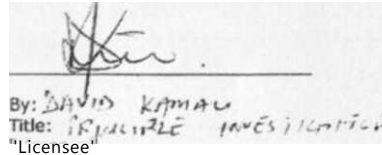 By: DAVID KAMAU
Title: PRINCIPLE INVESTIGATION
"Licensee"